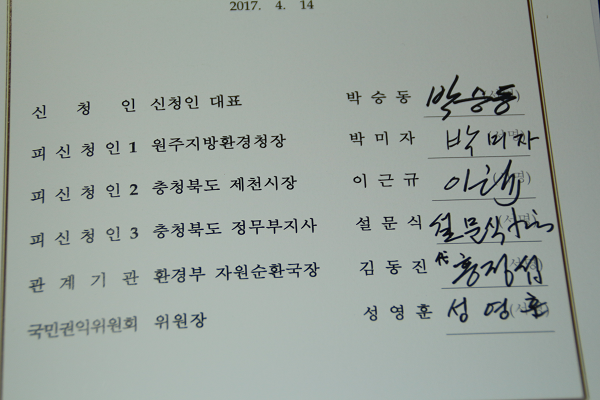 2017. 4. 14
신 청 인 신청인 대표 박 승 동 박승동
피 신 청 인 1 원주지방환경청장 박 미 자 박미자
피 신 청 인 2 충청북도 제천시장 이 근 규
피 신 청 인 3 충청북도 정무부지사 설 문 식 설문식
관 계 기 관 환경부 자원순환국장 김 동 진 代 홍정섭
국민권익위원회 위원장 성 영 훈 성영훈